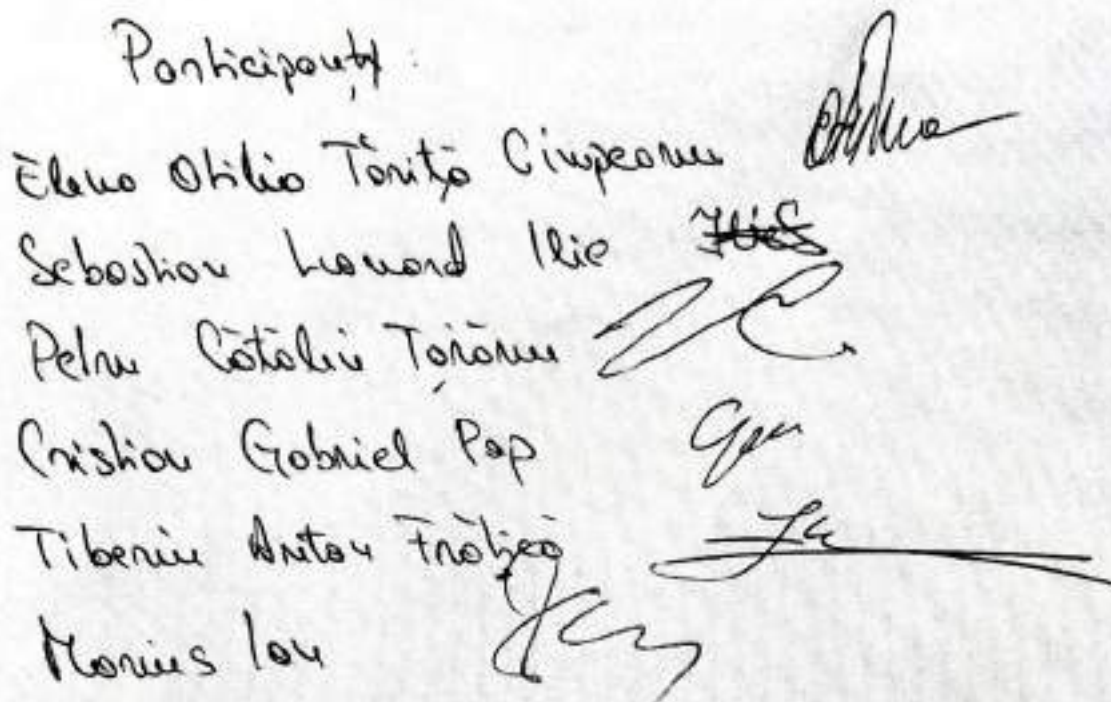 Participanți:
Elena Otilia Țăriță Cimpeanu
Sebastian Leonard Ilie
Petru Cătălin Țărănu
Cristian Gabriel Pap
Tiberiu Anton Frățică
Marius Ion